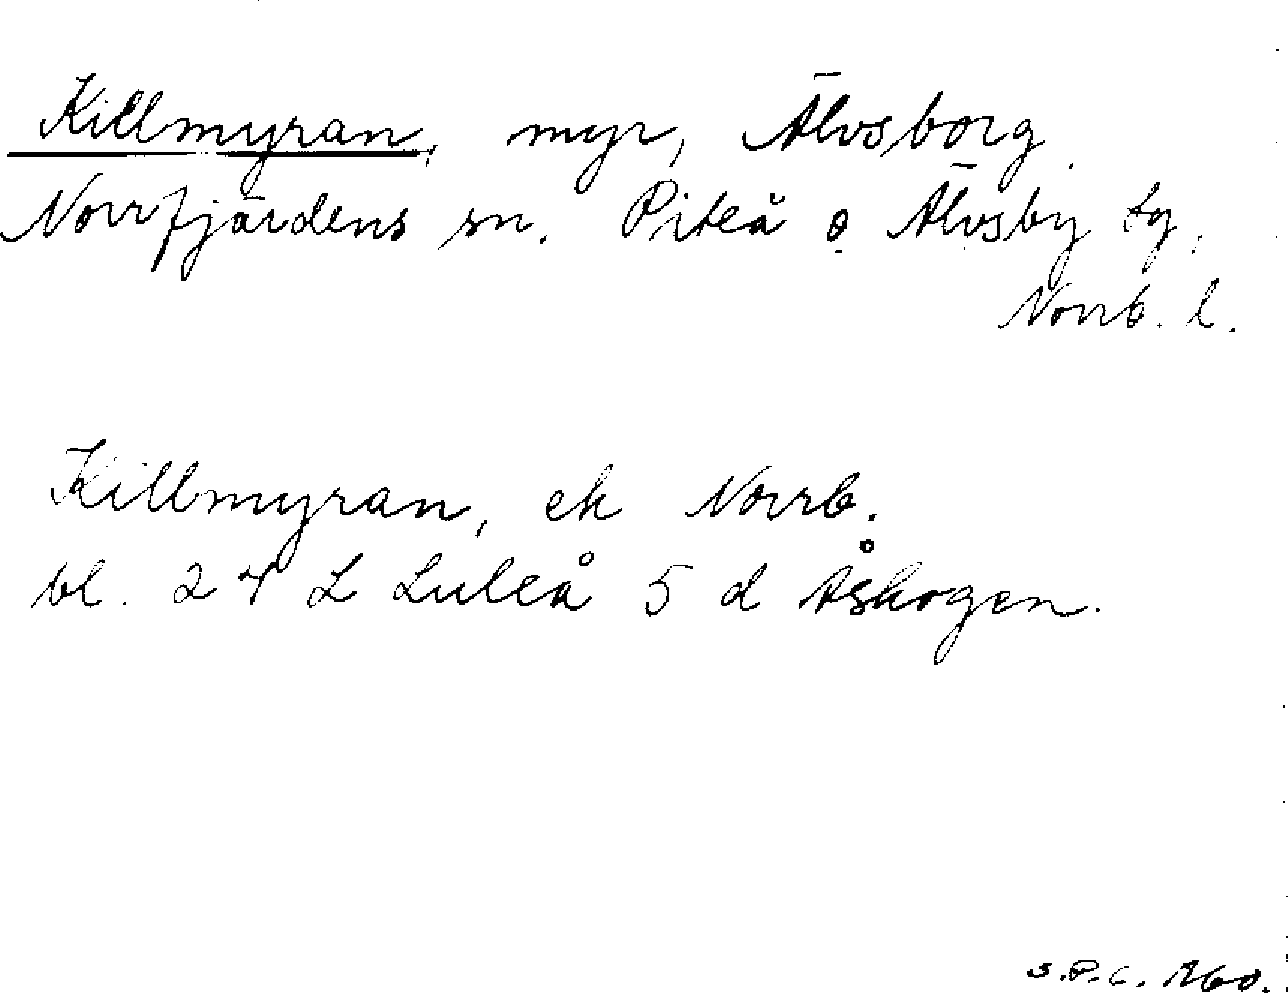 Killmyran, myr, Älvsborg
Norrfjärdens sn. Piteå o Älvsby tg,
Norrb. l.
Killmyran, ek Norrb.
bl. 24 L Luleå 5 d Åskogen.
S.P.C. 1960.